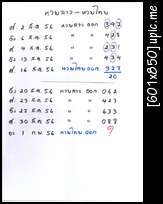 หวยลาว-หวยไทย
ศ. 2 ธ.ค 56 หวยลาว ออก 347
จ. 6 ธ.ค 56 " " 423
ศ. 9 ธ.ค 56 " " 231
จ. 13 ธ.ค 56 " " 434
ศ. 16 ธ.ค 56 หวยไทย ออก 327
20
จ. 20 ธ.ค 56 หวยลาว ออก 062
ศ. 23 ธ.ค 56 " " 423
จ. 27 ธ.ค 56 " " 633
ศ. 30 ธ.ค 56 " " 088
อา. 1 ก.พ 56 หวยไทย ออก ?
[601x850] upic.me